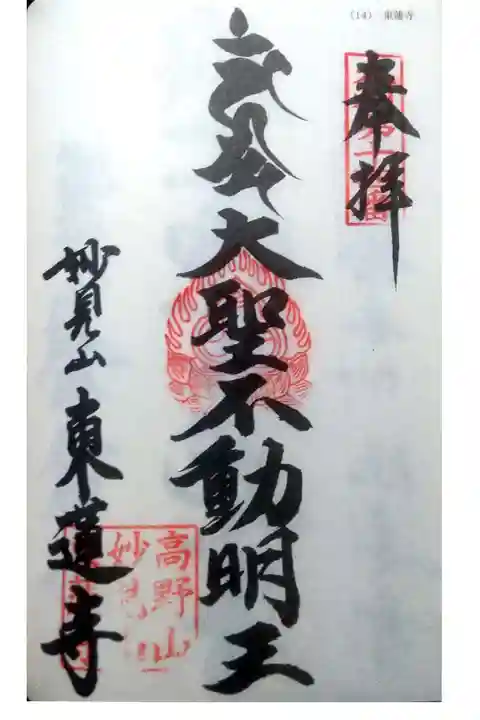 (14) 東蓮寺
奉拝
大聖不動明王
妙見山 東蓮寺
高野山
妙見山